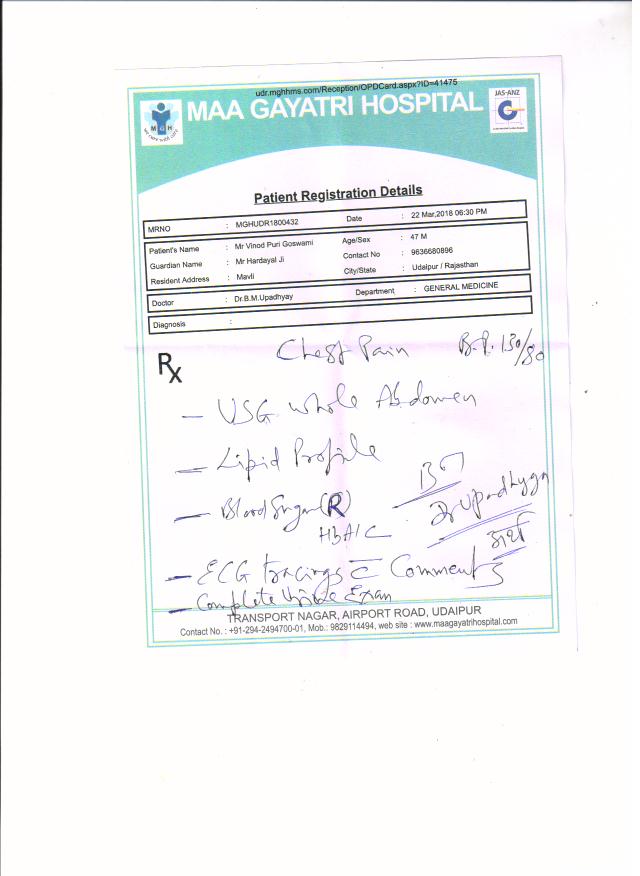 udr.mghhms.com/Reception/OPDCard.aspx?ID=41475
MAA GAYATRI HOSPITAL
JAS-ANZ
MGH
we care with care
Patient Registration Details
MRNO : MGHUDR1800432 Date : 22 Mar,2018 06:30 PM
Patient's Name : Mr Vinod Puri Goswami Age/Sex : 47 M
Guardian Name : Mr Hardayal Ji Contact No : 9636680896
Resident Address : Mavli City/State : Udaipur / Rajasthan
Doctor : Dr.B.M.Upadhyay Department : GENERAL MEDICINE
Diagnosis :
Rx Chest Pain B.P. 130/80
— USG whole Abdomen
— Lipid Profile
— Blood Sugar (R)
HbA1C
Dr Upadhyay
— ECG tracings c̄ Comments
— Complete Urine Exam
TRANSPORT NAGAR, AIRPORT ROAD, UDAIPUR
Contact No. : +91-294-2494700-01, Mob.: 9829114494, web site : www.maagayatrihospital.com